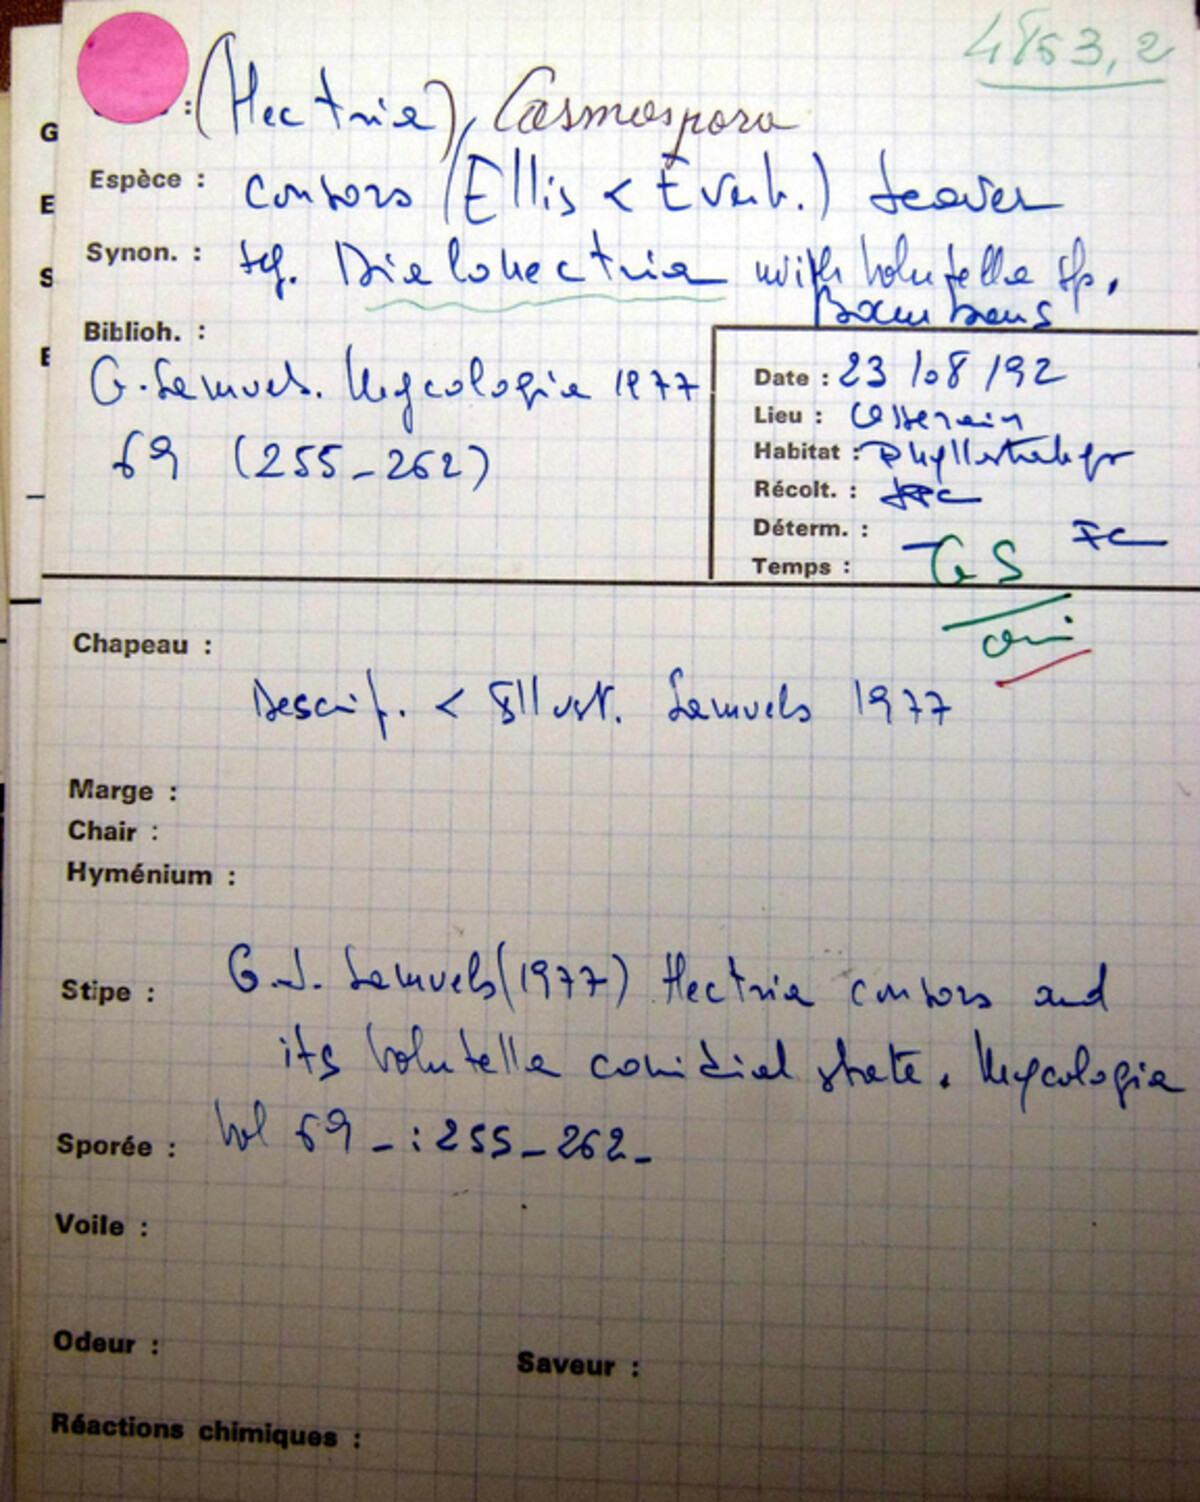 4853,2
: (Nectria), Cosmospora
G
Espèce : consors (Ellis & Everh.) Seaver
E
Synon. : sg. Dialonectria with Volutella sp.
S
Bambous
Biblioh. :
E
G. Samuels. Mycologia 1977
69 (255-262)
Date : 23/08/92
Lieu :
Habitat : Phyllostachys
Récolt. :
Déterm. : FC
Temps : GS
oui
Chapeau :
Descrip. & Illust. Samuels 1977
Marge :
Chair :
Hyménium :
Stipe : G.J. Samuels (1977) Nectria consors and
its Volutella conidial state. Mycologia
Sporée : Vol 69 - : 255-262-
Voile :
Odeur :
Saveur :
Réactions chimiques :